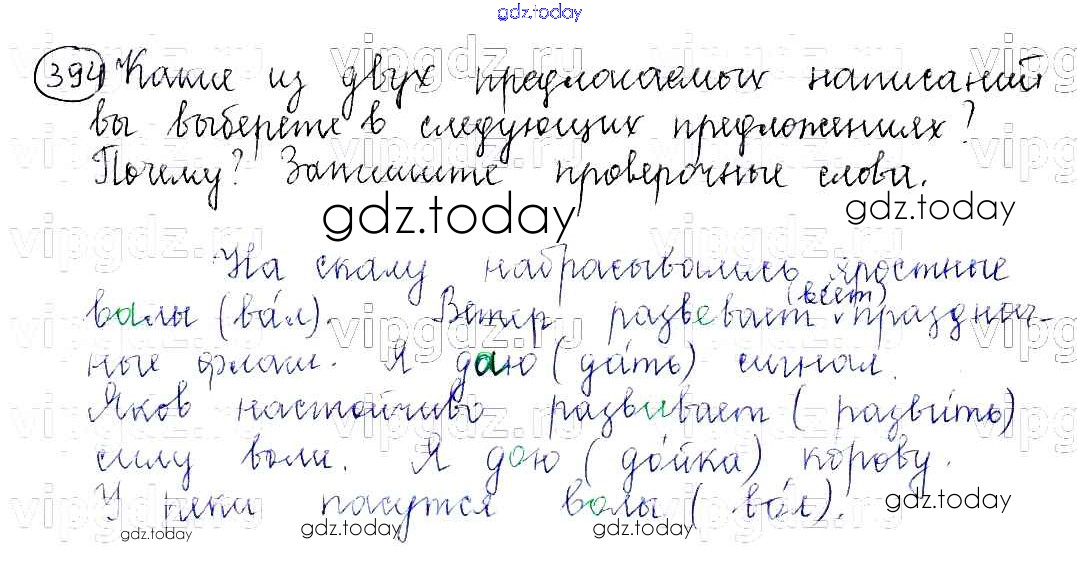 gdz.today
394 Какие из двух предлогаемых написаний
вы выберете в следующих предложениях?
Почему? Запишите проверочные слова.
gdz.today gdz.today
На скалу набрасывались яростные
валы (ва́л). Ветер развевает (ве́ет) празднич-
ные флаги. Я даю (да́ть) сигнал.
Яков настойчиво развивает (разви́ть)
силу воли. Я дою (до́йка) корову.
У реки пасутся волы (во́л).
gdz.today
gdz.today gdz.today gdz.today